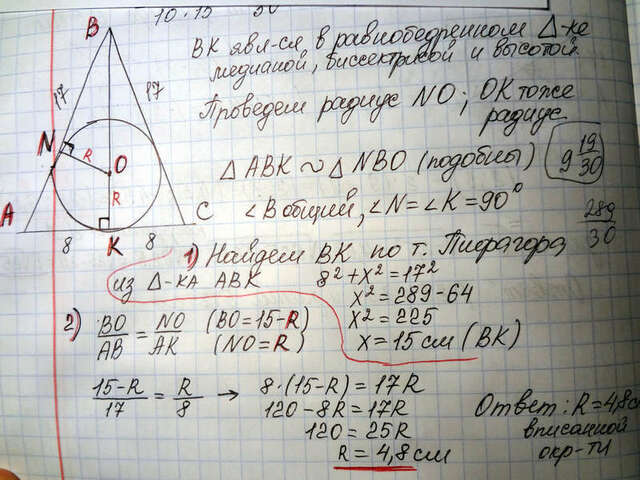 10 · 15
30
B
ВК явл-ся, в равнобедренном Δ-ке
медианой, биссектрисой и высотой.
17
17
Проведем радиус NO; OK тоже
радиус
N
R
O
R
A
C
8
K
8
Δ ABK ~ Δ NBO (подобны)
9 19/30
∠B общий, ∠N = ∠K = 90°
289/30
1) Найдем ВК по т. Пифагора
из Δ-ка ABK
8² + x² = 17²
x² = 289 - 64
x² = 225
x = 15 см (BK)
2) BO/AB = NO/AK (BO = 15 - R)
(NO = R)
(15-R)/17 = R/8 → 8·(15-R) = 17R
120 - 8R = 17R
120 = 25R
R = 4,8 см
Ответ: R = 4,8см
вписанной
окр-ти